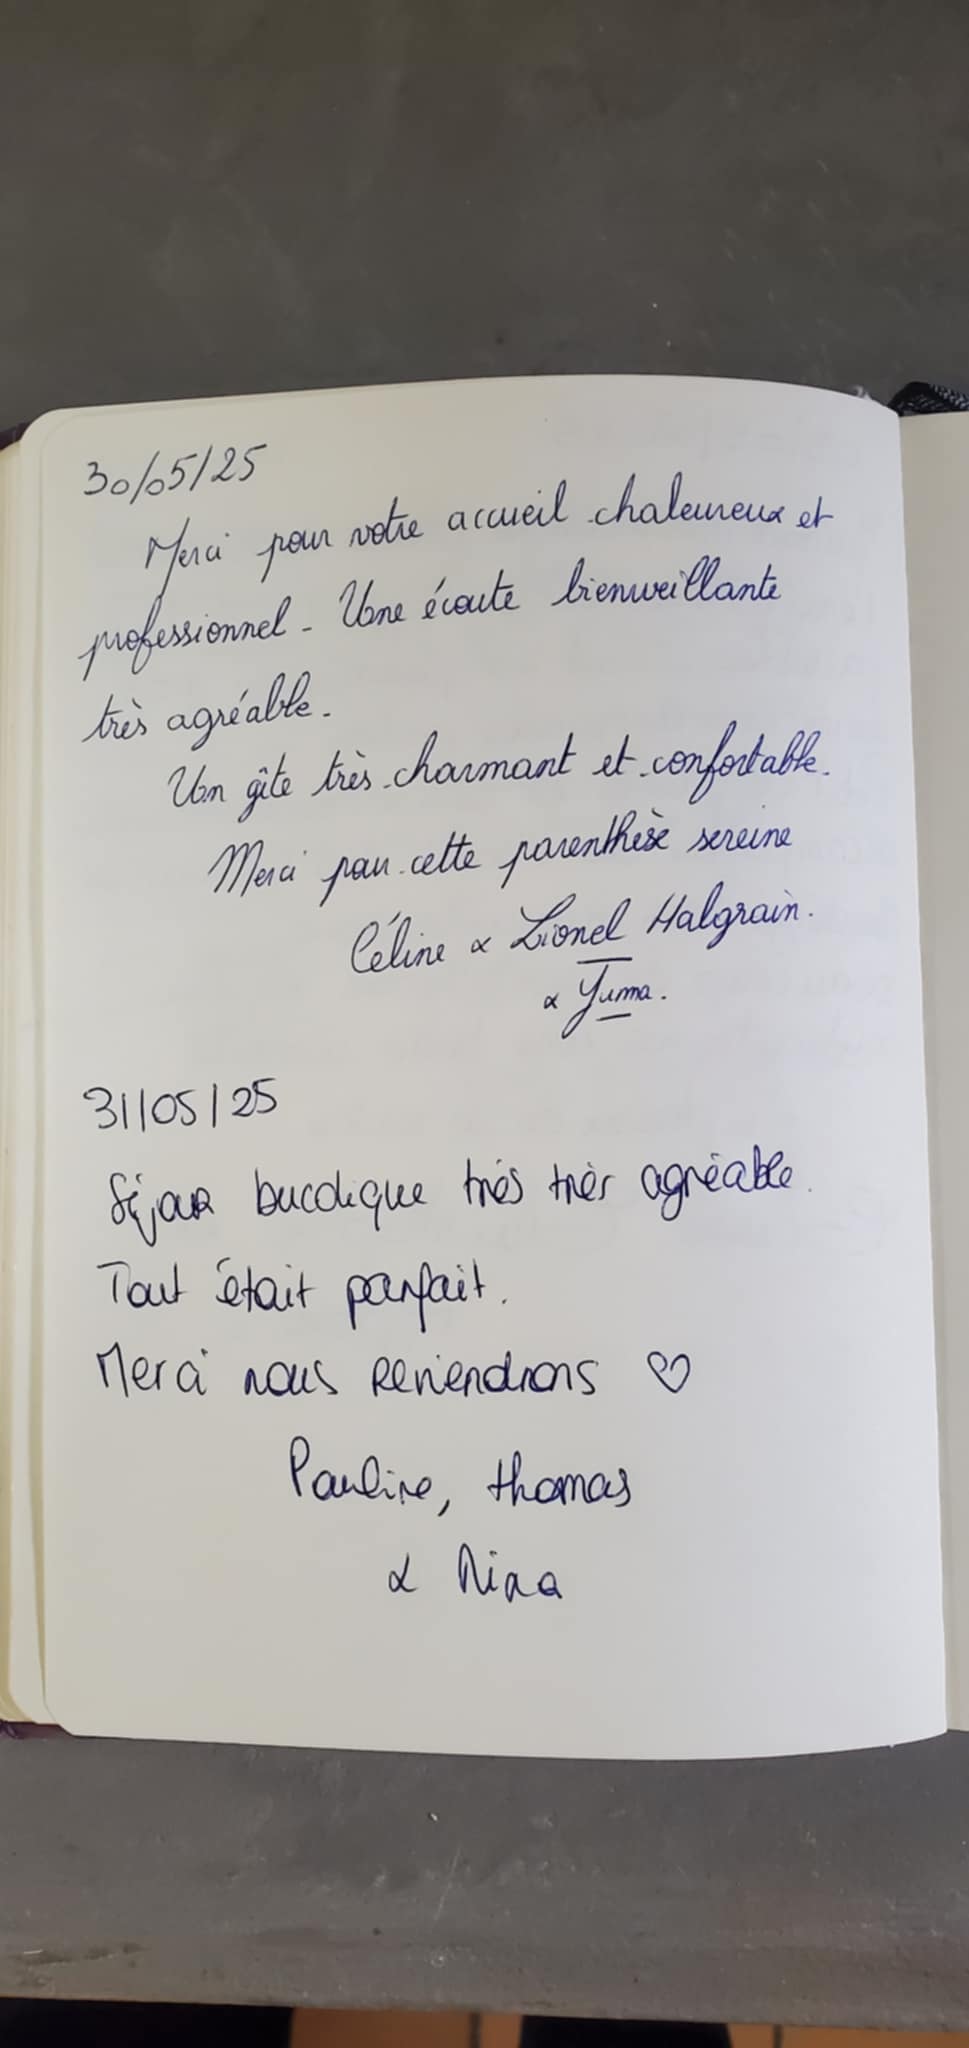 30/05/25
Merci pour votre accueil chaleureux et
professionnel - Une écoute bienveillante
très agréable.
Un gîte très charmant et confortable.
Merci pour cette parenthèse sereine
Céline & Lionel Halgrain.
& Yuma.
31/05/25
Séjour bucolique très très agréable.
Tout était parfait.
Merci nous reviendrons ♡
Pauline, thomas
& Nina